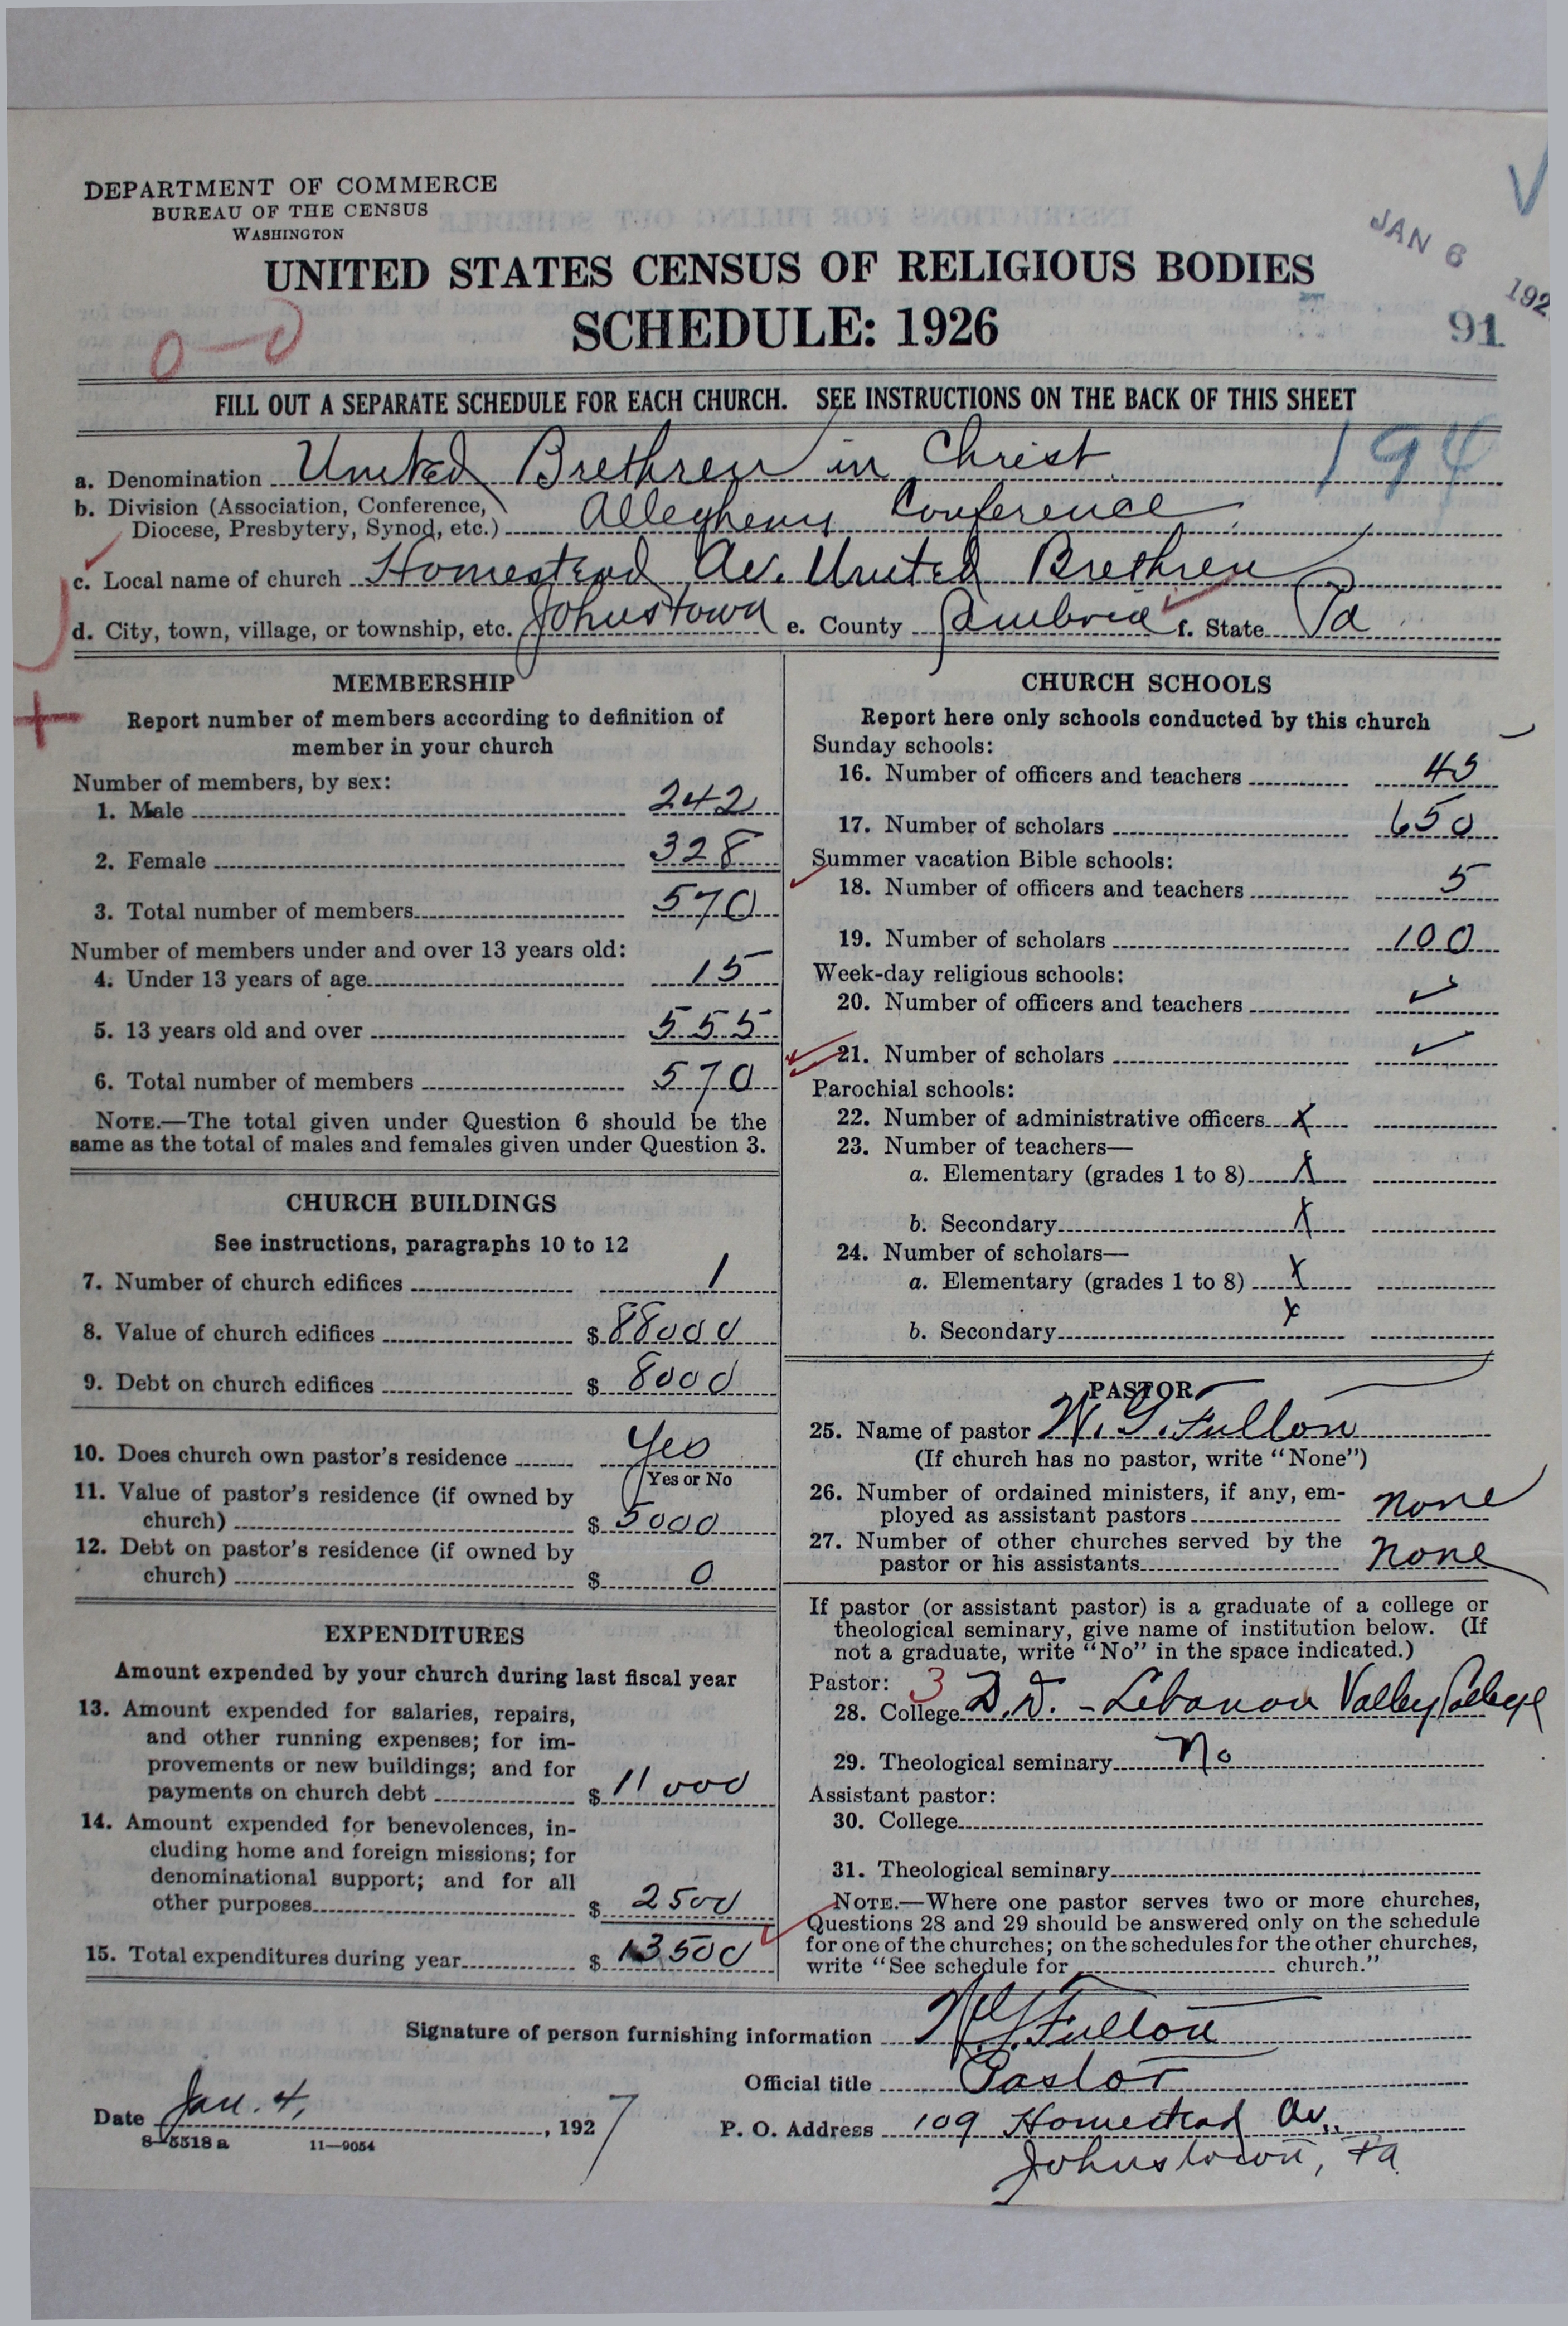 DEPARTMENT OF COMMERCE
BUREAU OF THE CENSUS
WASHINGTON
JAN 6 192
UNITED STATES CENSUS OF RELIGIOUS BODIES
SCHEDULE: 1926
91
FILL OUT A SEPARATE SCHEDULE FOR EACH CHURCH. SEE INSTRUCTIONS ON THE BACK OF THIS SHEET
194
a. Denomination United Brethren in Christ
b. Division (Association, Conference,
Diocese, Presbytery, Synod, etc.) Allegheny Conference
c. Local name of church Homestead Av. United Brethren
d. City, town, village, or township, etc. Johnstown e. County Cambria f. State Pa
MEMBERSHIP
Report number of members according to definition of
member in your church
Number of members, by sex:
1. Male 242
2. Female 328
3. Total number of members 570
Number of members under and over 13 years old:
4. Under 13 years of age 15
5. 13 years old and over 555
6. Total number of members 570
NOTE.—The total given under Question 6 should be the
same as the total of males and females given under Question 3.
CHURCH BUILDINGS
See instructions, paragraphs 10 to 12
7. Number of church edifices 1
8. Value of church edifices $ 88000
9. Debt on church edifices $ 8000
10. Does church own pastor's residence Yes
Yes or No
11. Value of pastor's residence (if owned by
church) $ 5000
12. Debt on pastor's residence (if owned by
church) $ 0
EXPENDITURES
Amount expended by your church during last fiscal year
13. Amount expended for salaries, repairs,
and other running expenses; for im-
provements or new buildings; and for
payments on church debt $ 11000
14. Amount expended for benevolences, in-
cluding home and foreign missions; for
denominational support; and for all
other purposes $ 2500
15. Total expenditures during year $ 13500
CHURCH SCHOOLS
Report here only schools conducted by this church
Sunday schools:
16. Number of officers and teachers 45
17. Number of scholars 650
Summer vacation Bible schools:
18. Number of officers and teachers 5
19. Number of scholars 100
Week-day religious schools:
20. Number of officers and teachers
21. Number of scholars
Parochial schools:
22. Number of administrative officers x
23. Number of teachers—
a. Elementary (grades 1 to 8) x
b. Secondary x
24. Number of scholars—
a. Elementary (grades 1 to 8) x
b. Secondary x
PASTOR
25. Name of pastor W. G. Fulton
(If church has no pastor, write "None")
26. Number of ordained ministers, if any, em-
ployed as assistant pastors none
27. Number of other churches served by the
pastor or his assistants none
If pastor (or assistant pastor) is a graduate of a college or
theological seminary, give name of institution below. (If
not a graduate, write "No" in the space indicated.)
Pastor: 3
28. College D.D. - Lebanon Valley College
29. Theological seminary No
Assistant pastor:
30. College
31. Theological seminary
NOTE.—Where one pastor serves two or more churches,
Questions 28 and 29 should be answered only on the schedule
for one of the churches; on the schedules for the other churches,
write "See schedule for church."
Signature of person furnishing information W. G. Fulton
Official title Pastor
Date Jan. 4, 1927
P. O. Address 109 Homestead Av.,
Johnstown, Pa
8—5518a 11—9054